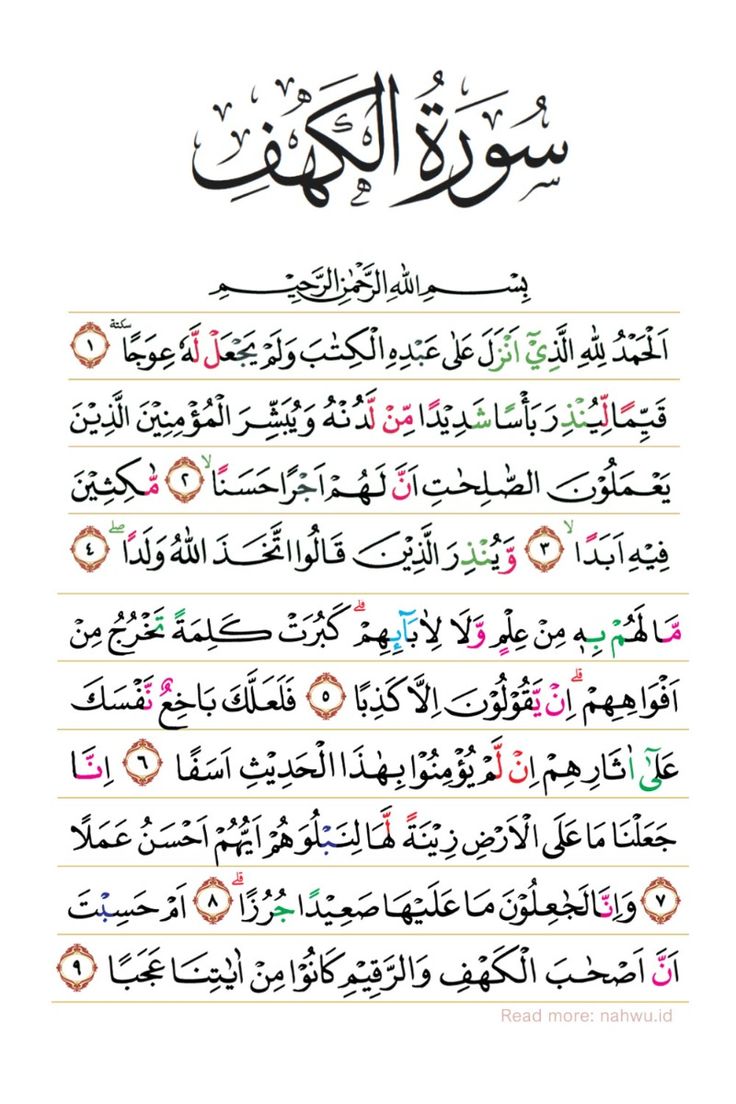 سُورَةُ الْكَهْفِ
بِسْمِ اللهِ الرَّحْمٰنِ الرَّحِيْمِ
اَلْحَمْدُ لِلّٰهِ الَّذِيْٓ اَنْزَلَ عَلٰى عَبْدِهِ الْكِتٰبَ وَلَمْ يَجْعَلْ لَّهٗ عِوَجًا ۜ سكتة ١
قَيِّمًا لِّيُنْذِرَ بَأْسًا شَدِيْدًا مِّنْ لَّدُنْهُ وَيُبَشِّرَ الْمُؤْمِنِيْنَ الَّذِيْنَ
يَعْمَلُوْنَ الصّٰلِحٰتِ اَنَّ لَهُمْ اَجْرًا حَسَنًاۙ ٢ مّٰكِثِيْنَ
فِيْهِ اَبَدًاۙ ٣ وَّيُنْذِرَ الَّذِيْنَ قَالُوا اتَّخَذَ اللّٰهُ وَلَدًاۖ ٤
مَّا لَهُمْ بِهٖ مِنْ عِلْمٍ وَّلَا لِاٰبَاۤىِٕهِمْۗ كَبُرَتْ كَلِمَةً تَخْرُجُ مِنْ
اَفْوَاهِهِمْۗ اِنْ يَّقُوْلُوْنَ اِلَّا كَذِبًا ٥ فَلَعَلَّكَ بَاخِعٌ نَّفْسَكَ
عَلٰٓى اٰثَارِهِمْ اِنْ لَّمْ يُؤْمِنُوْا بِهٰذَا الْحَدِيْثِ اَسَفًا ٦ اِنَّا
جَعَلْنَا مَا عَلَى الْاَرْضِ زِيْنَةً لَّهَا لِنَبْلُوَهُمْ اَيُّهُمْ اَحْسَنُ عَمَلًا
٧ وَاِنَّا لَجٰعِلُوْنَ مَا عَلَيْهَا صَعِيْدًا جُرُزًاۗ ٨ اَمْ حَسِبْتَ
اَنَّ اَصْحٰبَ الْكَهْفِ وَالرَّقِيْمِ كَانُوْا مِنْ اٰيٰتِنَا عَجَبًا ٩
Read more: nahwu.id